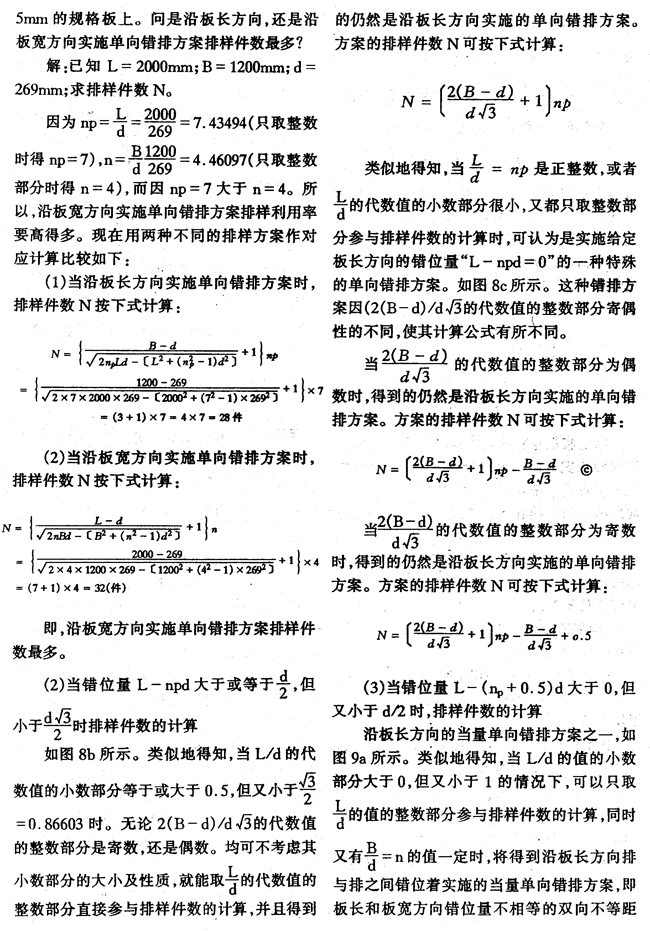 5mm 的规格板上。问是沿板长方向,还是沿
板宽方向实施单向错排方案排样件数最多?
解:已知 L = 2000mm; B = 1200mm; d =
269mm;求排样件数 N。
因为 np = L/d = 2000/269 = 7.43494(只取整数
时得 np=7), n = B/d 1200/269 = 4.46097(只取整数
部分时得 n = 4),而因 np = 7 大于 n = 4。所
以,沿板宽方向实施单向错排方案排样利用率
要高得多。现在用两种不同的排样方案作对
应计算比较如下:
(1)当沿板长方向实施单向错排方案时,
排样件数 N 按下式计算:
N = {(B - d)/√(2npLd - [L² + (np² - 1)d²]) + 1} np
= {(1200 - 269)/√(2×7×2000×269 - [2000² + (7² - 1)×269²]) + 1}×7
= (3 + 1) × 7 = 4 × 7 = 28 件
(2)当沿板宽方向实施单向错排方案时,
排样件数 N 按下式计算:
N = {(L - d)/√(2nBd - [B² + (n² - 1)d²]) + 1} n
= {(2000 - 269)/√(2×4×1200×269 - [1200² + (4² - 1)×269²]) + 1}×4
= (7 + 1) × 4 = 32(件)
即,沿板宽方向实施单向错排方案排样件
数最多。
(2)当错位量 L - npd 大于或等于 d/2,但
小于 d√3/2 时排样件数的计算
如图 8b 所示。类似地得知,当 L/d 的代
数值的小数部分等于或大于 0.5,但又小于 √3/2
=0.86603 时。无论 2(B - d)/d√3的代数值
的整数部分是寄数,还是偶数。均可不考虑其
小数部分的大小及性质,就能取 L/d 的代数值的
整数部分直接参与排样件数的计算,并且得到
的仍然是沿板长方向实施的单向错排方案。
方案的排样件数 N 可按下式计算:
N = [2(B - d)/d√3 + 1] np
类似地得知,当 L/d = np 是正整数,或者
L/d 的代数值的小数部分很小,又都只取整数部
分参与排样件数的计算时,可认为是实施给定
板长方向的错位量“L - npd = 0”的一种特殊
的单向错排方案。如图 8c 所示。这种错排方
案因(2(B - d)/d√3的代数值的整数部分寄偶
性的不同,使其计算公式有所不同。
当 2(B - d)/d√3 的代数值的整数部分为偶
数时,得到的仍然是沿板长方向实施的单向错
排方案。方案的排样件数 N 可按下式计算:
N = [2(B - d)/d√3 + 1] np - (B - d)/d√3 ⓒ
当 2(B - d)/d√3 的代数值的整数部分为寄数
时,得到的仍然是沿板长方向实施的单向错排
方案。方案的排样件数 N 可按下式计算:
N = [2(B - d)/d√3 + 1] np - (B - d)/d√3 + 0.5
(3)当错位量 L - (np + 0.5)d 大于 0,但
又小于 d/2 时,排样件数的计算
沿板长方向的当量单向错排方案之一,如
图 9a 所示。类似地得知,当 L/d 的值的小数
部分大于 0,但又小于 1 的情况下,可以只取
L/d 的值的整数部分参与排样件数的计算,同时
又有 B/d = n 的值一定时,将得到沿板长方向排
与排之间错位着实施的当量单向错排方案,即
板长和板宽方向错位量不相等的双向不等距